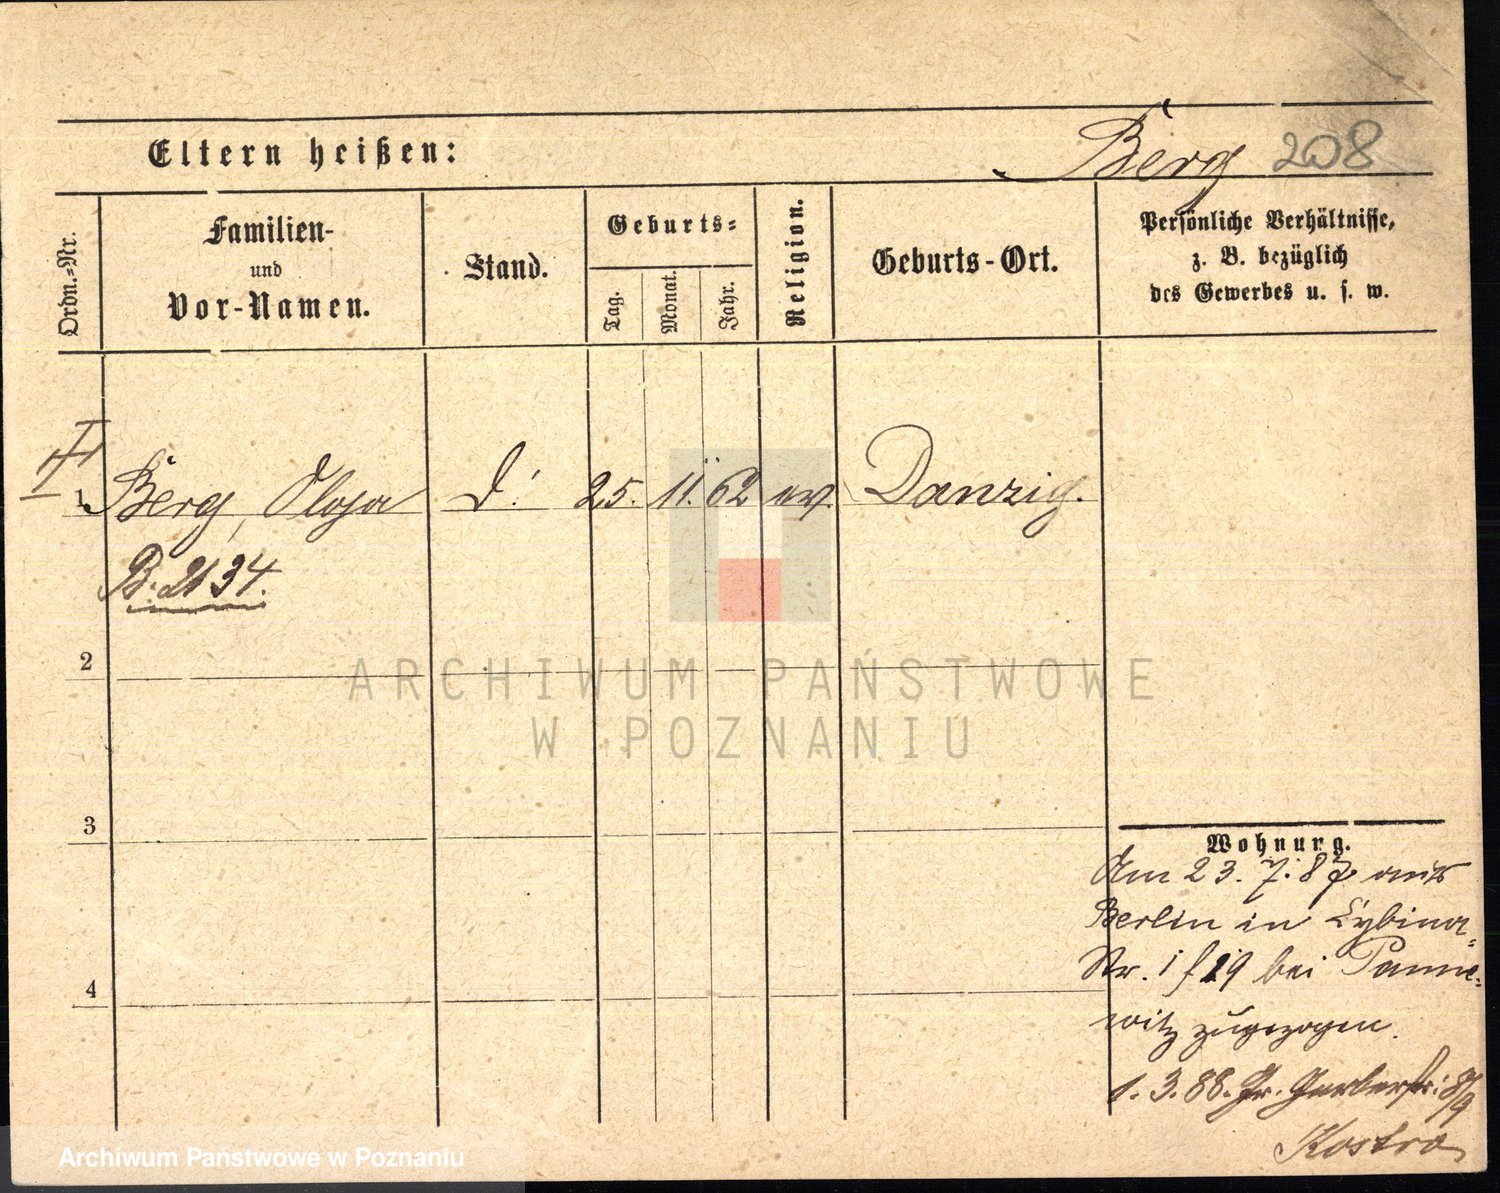 Eltern heißen:
Berg 208
Ordn.-Nr.
Familien-
und
Vor-Namen.
Stand.
Geburts-
Tag.
Monat.
Jahr.
Religion.
Geburts-Ort.
Persönliche Verhältnisse,
z. B. bezüglich
des Gewerbes u. s. w.
Berg, Olga D. 25. 11. 62 ev. Danzig.
B. 2134.
2
3
4
Wohnung.
Am 23. 7. 87 aus
Berlin in Cybina-
Str. 1 f 19 bei Panne-
witz zugezogen.
1. 3. 88. Gr. Gerberstr: 8/9
Kostro
ARCHIWUM PAŃSTWOWE
W POZNANIU
Archiwum Państwowe w Poznaniu